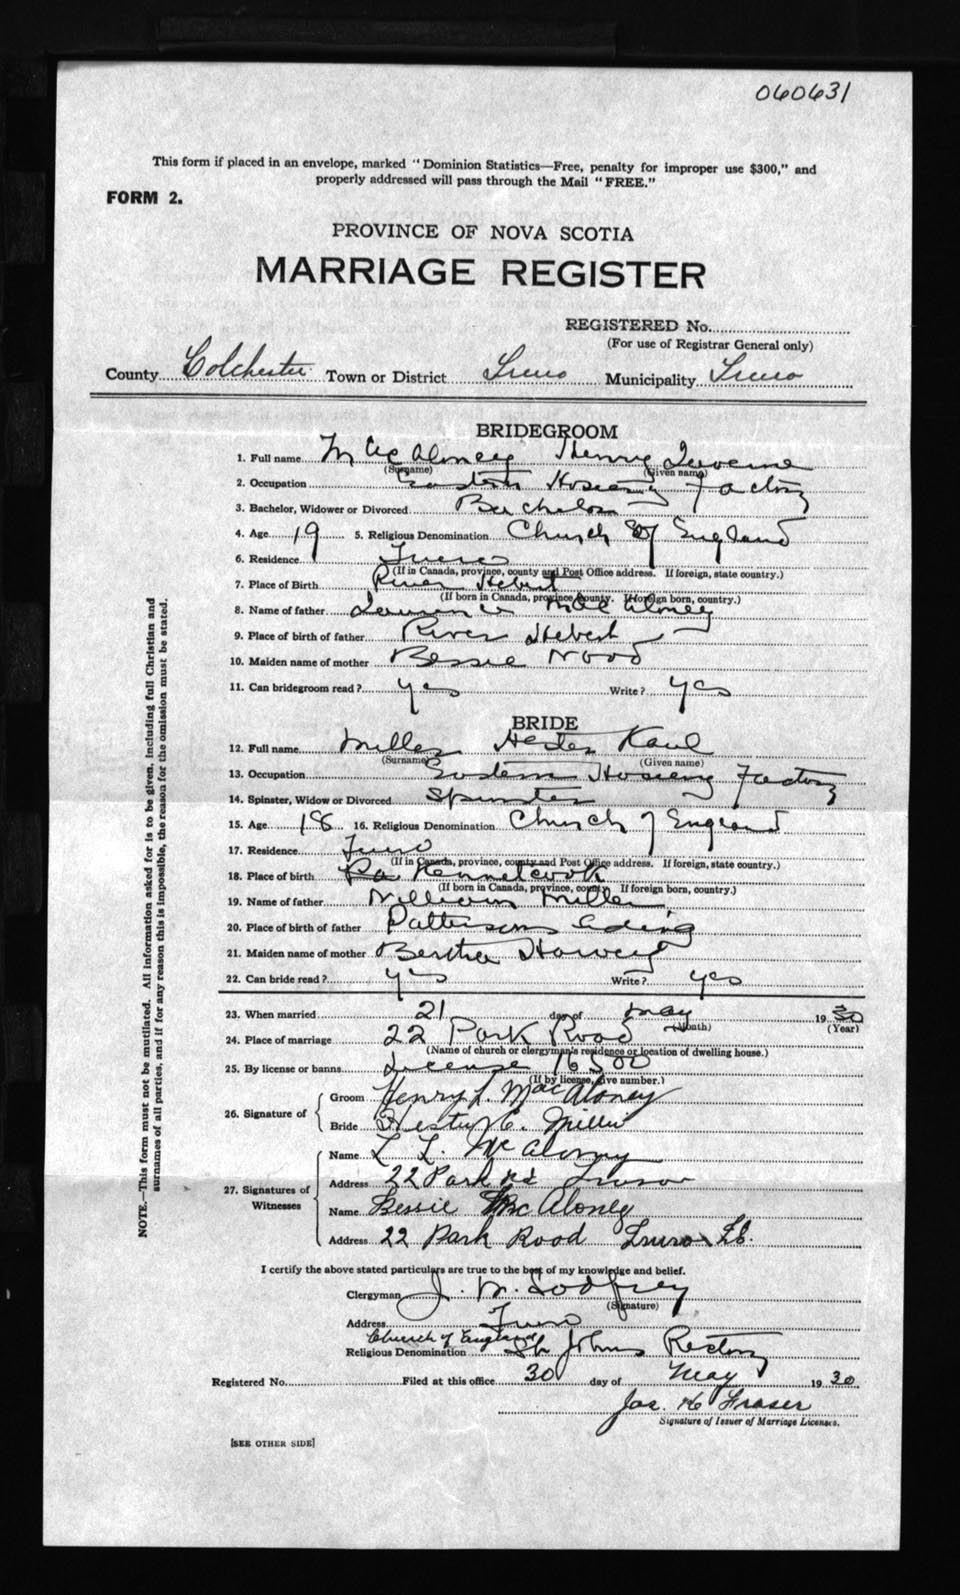 060631
This form if placed in an envelope, marked "Dominion Statistics—Free, penalty for improper use $300," and
properly addressed will pass through the Mail "FREE."
FORM 2.
PROVINCE OF NOVA SCOTIA
MARRIAGE REGISTER
REGISTERED No.
(For use of Registrar General only)
County Colchester Town or District Truro Municipality Truro
BRIDEGROOM
1. Full name McAloney Henry
(Surname) (Given name)
2. Occupation Eastern Hosiery Factory
3. Bachelor, Widower or Divorced Bachelor
4. Age 19 5. Religious Denomination Church of England
6. Residence Truro
(If in Canada, province, county and Post Office address. If foreign, state country.)
7. Place of Birth River Hebert
(If born in Canada, province, county. If foreign born, country.)
8. Name of father Lawrence MacAloney
9. Place of birth of father River Hebert
10. Maiden name of mother Bessie Wood
11. Can bridegroom read? yes Write? yes
BRIDE
12. Full name Miller Hester
(Surname) (Given name)
13. Occupation Eastern Hosiery Factory
14. Spinster, Widow or Divorced Spinster
15. Age 18 16. Religious Denomination Church of England
17. Residence Truro
(If in Canada, province, county and Post Office address. If foreign, state country.)
18. Place of birth Kennetcook
(If born in Canada, province, county. If foreign born, country.)
19. Name of father William Miller
20. Place of birth of father Pattersons Siding
21. Maiden name of mother Bertha Harvey
22. Can bride read? yes Write? yes
23. When married 21 day of May 1930
(Month) (Year)
24. Place of marriage 22 Park Road
(Name of church or clergyman's residence or location of dwelling house.)
25. By license or banns License 16500
(If by license, give number.)
26. Signature of
Groom Henry L. MacAloney
Bride Hester C. Miller
27. Signatures of Witnesses
Name L L. McAloney
Address 22 Park Rd Truro
Name Bessie McAloney
Address 22 Park Road Truro
I certify the above stated particulars are true to the best of my knowledge and belief.
Clergyman J. M. Godfrey
(Signature)
Address Truro
Church of England
Religious Denomination St Johns Rectory
Registered No. Filed at this office 30 day of May 1930
Jas. H Fraser
Signature of Issuer of Marriage Licenses.
[SEE OTHER SIDE]
NOTE.—This form must not be mutilated. All information asked for is to be given, including full Christian and
surnames of all parties, and if for any reason this is impossible, the reason for the omission must be stated.